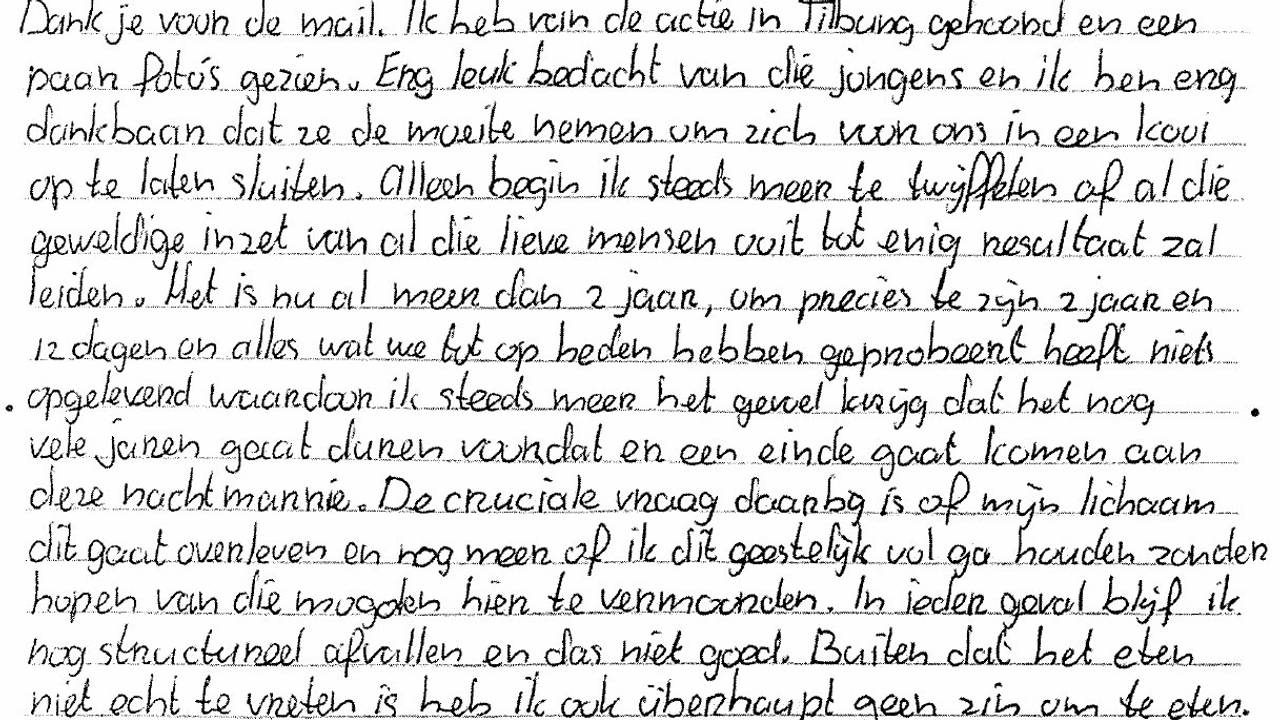 Dank je voor de mail. Ik heb van de actie in Tilburg gehoord en een
paar foto's gezien. Erg leuk bedacht van die jongens en ik ben erg
dankbaar dat ze de moeite nemen om zich voor ons in een kooi
op te laten sluiten. Alleen begin ik steeds meer te twijffelen of al die
geweldige inzet van al die lieve mensen ooit tot enig resultaat zal
leiden. Het is nu al meer dan 2 jaar, om precies te zijn 2 jaar en
12 dagen en alles wat we tot op heden hebben geprobeert heeft niets
opgeleverd waardoor ik steeds meer het gevoel krijg dat het nog
vele jaren gaat duren voordat er een einde gaat komen aan
deze nachtmarrie. De cruciale vraag daarbij is of mijn lichaam
dit gaat overleven en nog meer of ik dit geestelijk vol ga houden zonder
hopen van die mogolen hier te vermoorden. In ieder geval blijf ik
nog structureel afvallen en das niet goed. Buiten dat het eten
niet echt te vreten is heb ik ook überhaupt geen zin om te eten.